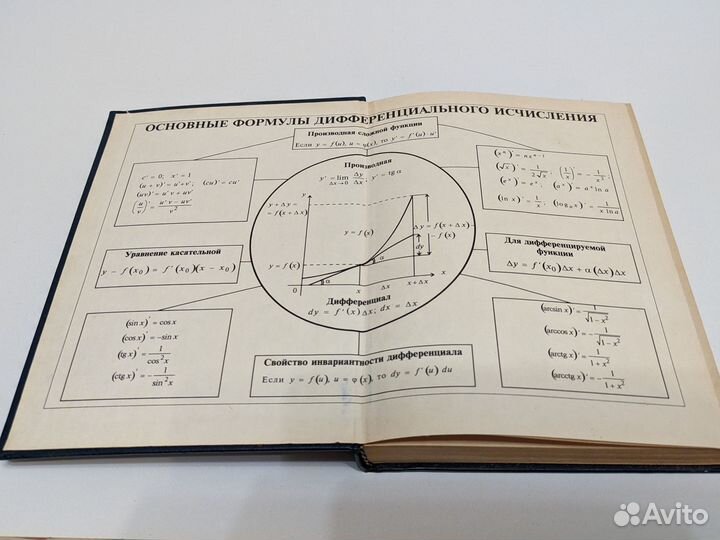 ОСНОВНЫЕ ФОРМУЛЫ ДИФФЕРЕНЦИАЛЬНОГО ИСЧИСЛЕНИЯ
Производная сложной функции
Если y = f(u), u = φ(x), то y' = f'(u)·u'
c' = 0; x' = 1
(u + v)' = u' + v'; (cu)' = cu'
(uv)' = u'v + uv'
(u/v)' = (u'v − uv')/v²
Производная
y' = lim Δx→0 Δy/Δx; y' = tg α
(xⁿ)' = nxⁿ⁻¹
(√x)' = 1/(2√x), (1/x)' = −1/x²
(eˣ)' = eˣ, (aˣ)' = aˣ ln a
(ln x)' = 1/x; (logₐx)' = 1/(x ln a)
y
y + Δy =
= f(x + Δx)
y = f(x)
y = f(x)
Δy = f(x + Δx) −
− f(x)
dy
α
α
0
x
Δx
x + Δx
x
Уравнение касательной
y − f(x₀) = f'(x₀)(x − x₀)
Для дифференцируемой
функции
Δy = f'(x₀)Δx + α(Δx)Δx
Дифференциал
dy = f'(x)Δx; dx = Δx
(sin x)' = cos x
(cos x)' = −sin x
(tg x)' = 1/cos²x
(ctg x)' = −1/sin²x
(arcsin x)' = 1/√(1 − x²)
(arccos x)' = −1/√(1 − x²)
(arctg x)' = 1/(1 + x²)
(arcctg x)' = −1/(1 + x²)
Свойство инвариантности дифференциала
Если y = f(u), u = φ(x), то dy = f'(u) du
Avito